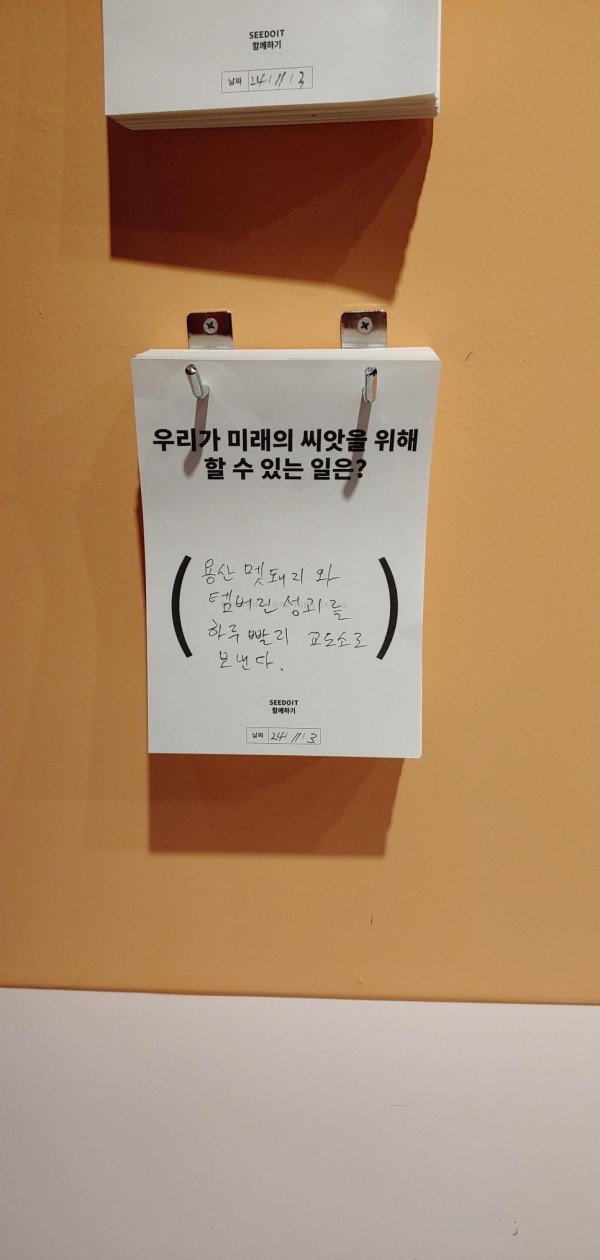 SEEDOIT
함께하기
날짜 24 / 11 / 3
우리가 미래의 씨앗을 위해
할 수 있는 일은?
용산 멧돼지 와
템버린 성괴를
하루 빨리 교도소로
보낸다.
SEEDOIT
함께하기
날짜 24 / 11 / 3